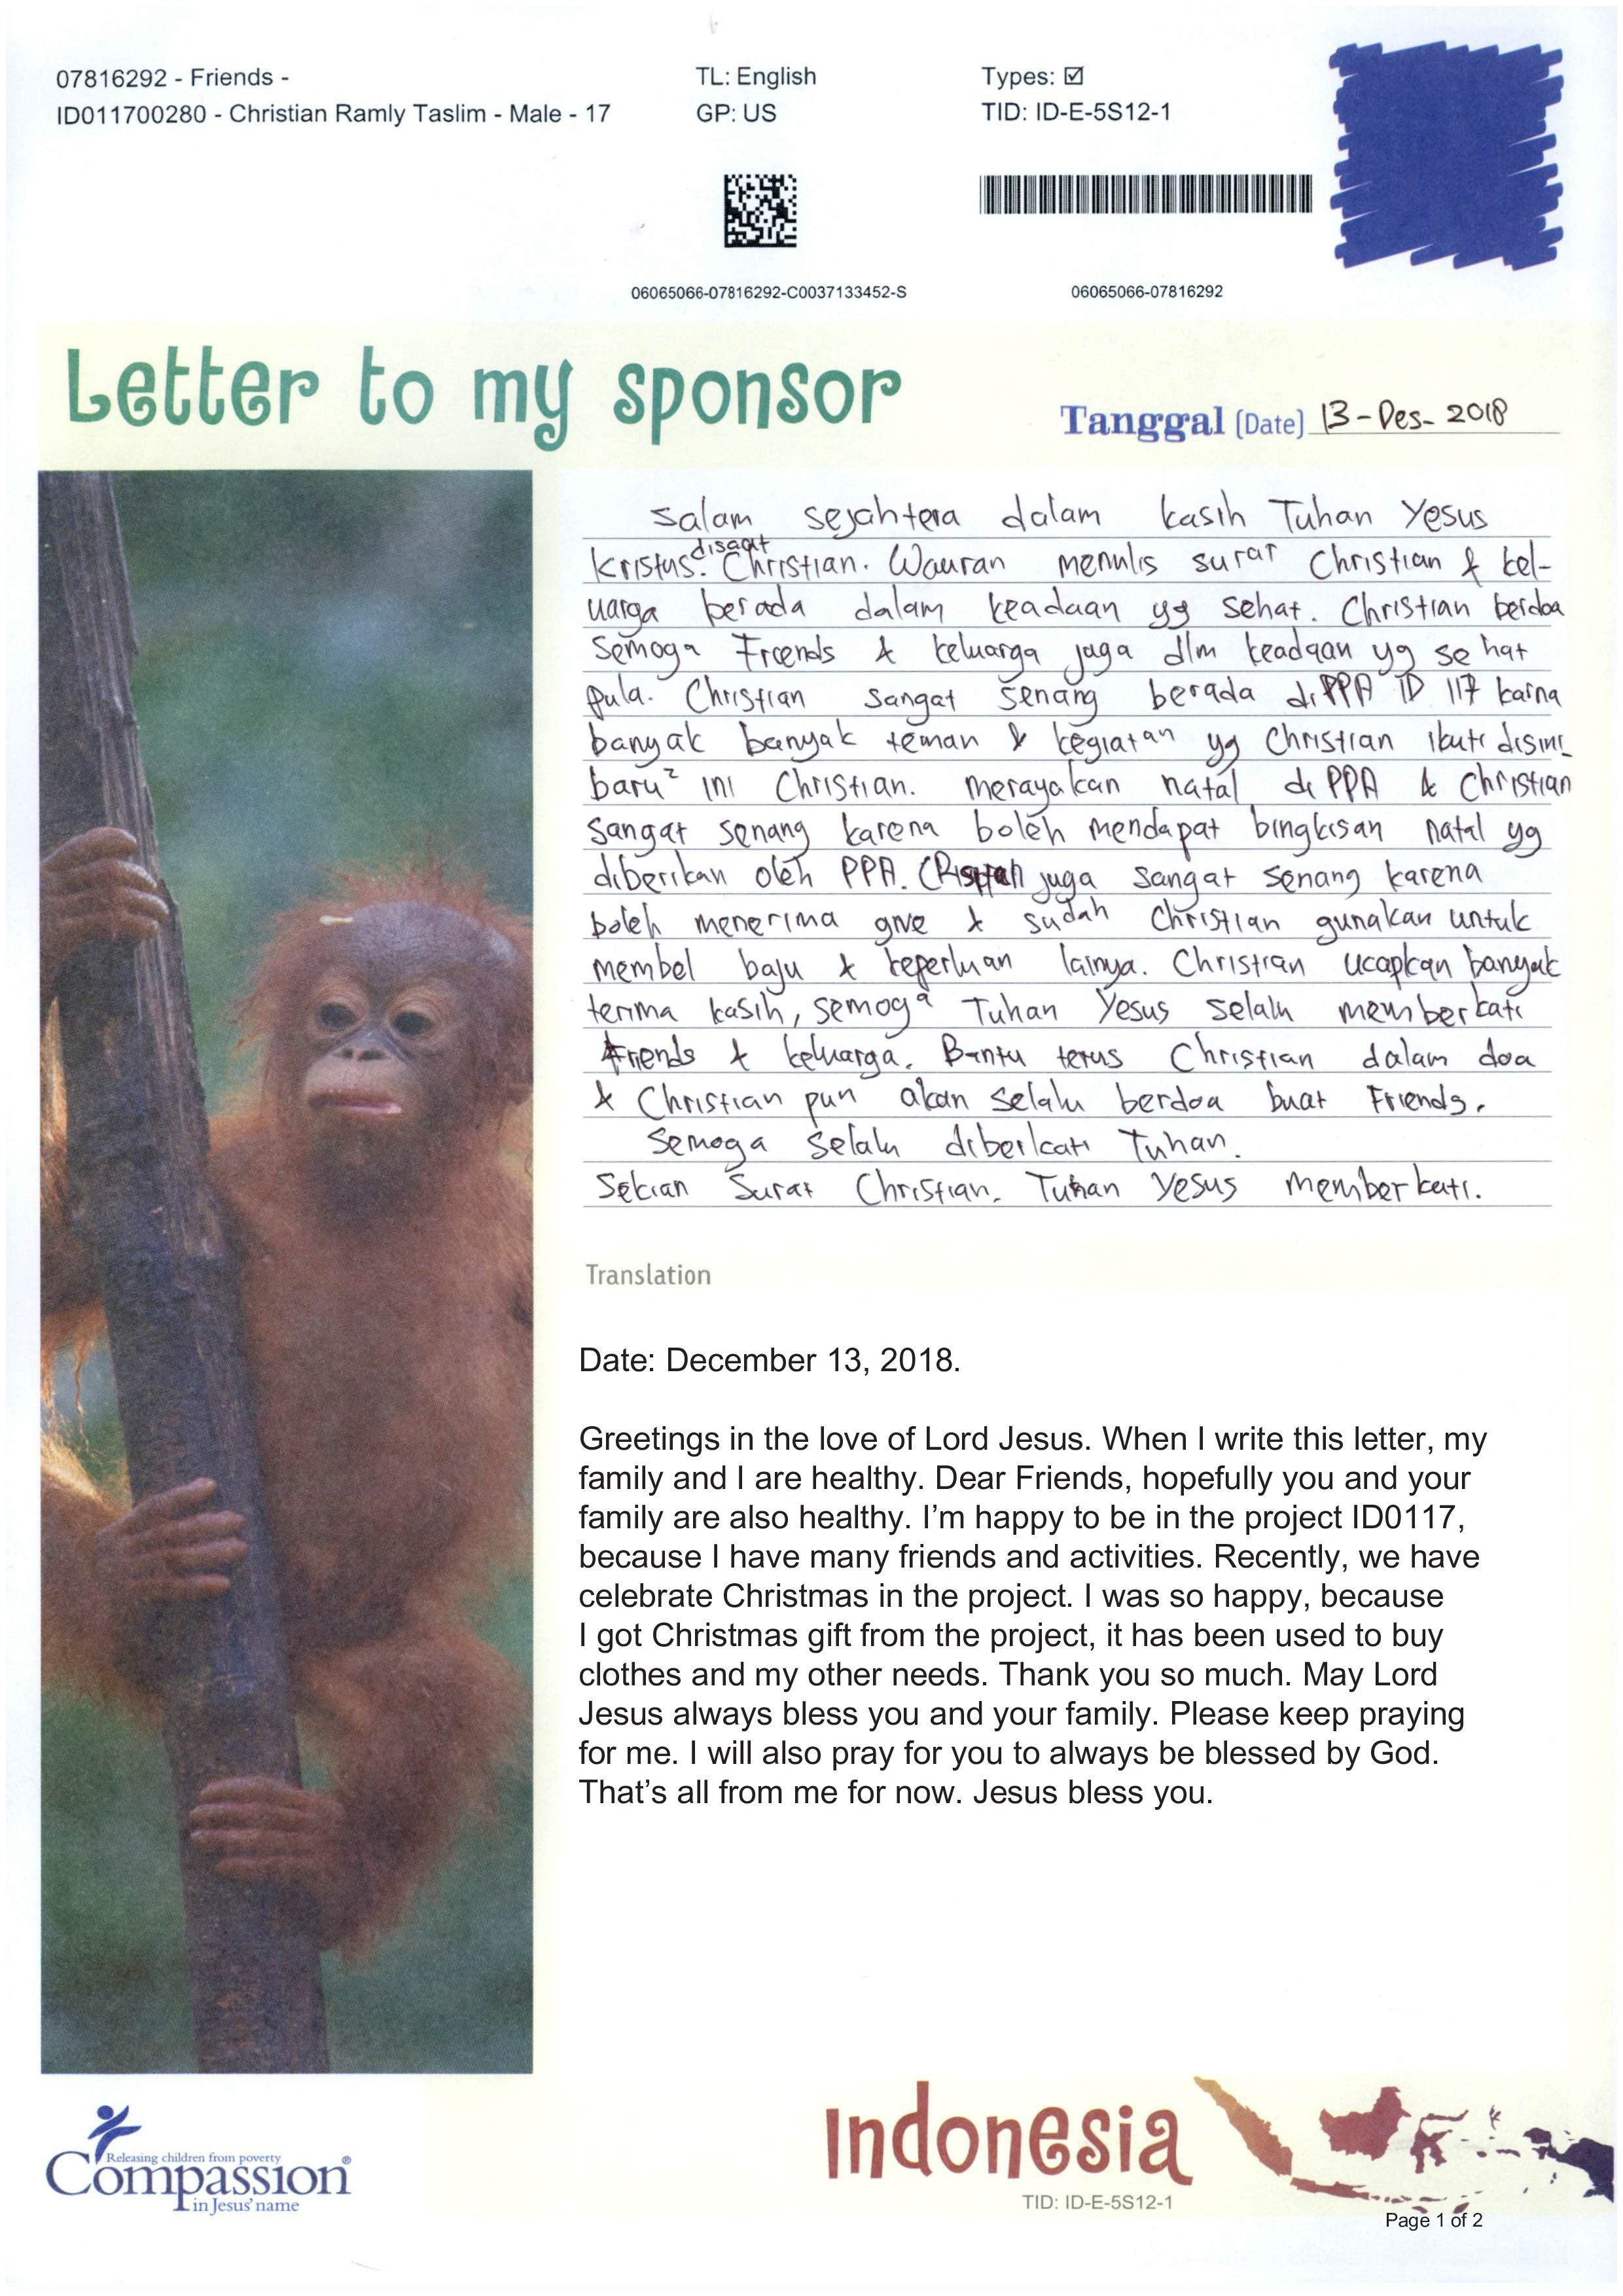 07816292 - Friends -
ID011700280 - Christian Ramly Taslim - Male - 17
TL: English
GP: US
Types: ☑
TID: ID-E-5S12-1
06065066-07816292-C0037133452-S
06065066-07816292
Letter to my sponsor
Tanggal (Date) 13-Des-2018
salam sejahtera dalam kasih Tuhan Yesus
disaat
kristus. Christian. Wauran menulis surat Christian & kel-
uarga berada dalam keadaan yg sehat. Christian berdoa
semoga Friends & keluarga juga dlm keadaan yg sehat
pula. Christian sangat senang berada di PPA ID 117 karna
banyak banyak teman & kegiatan yg Christian ikuti disini.
baru² ini Christian. merayakan natal di PPA & Christian
sangat senang karena boleh mendapat bingkisan natal yg
diberikan oleh PPA. juga sangat senang karena
boleh menerima give & sudah Christian gunakan untuk
membel baju & keperluan lainya. Christian ucapkan banyak
terima kasih, semoga Tuhan Yesus selalu memberkati
Friends & keluarga. Bantu terus Christian dalam doa
& Christian pun akan selalu berdoa buat Friends.
semoga selalu diberkati Tuhan.
Sekian Surat Christian. Tuhan Yesus memberkati.
Translation
Date: December 13, 2018.
Greetings in the love of Lord Jesus. When I write this letter, my
family and I are healthy. Dear Friends, hopefully you and your
family are also healthy. I'm happy to be in the project ID0117,
because I have many friends and activities. Recently, we have
celebrate Christmas in the project. I was so happy, because
I got Christmas gift from the project, it has been used to buy
clothes and my other needs. Thank you so much. May Lord
Jesus always bless you and your family. Please keep praying
for me. I will also pray for you to always be blessed by God.
That's all from me for now. Jesus bless you.
Releasing children from poverty
Compassion®
in Jesus' name
Indonesia
TID: ID-E-5S12-1
Page 1 of 2